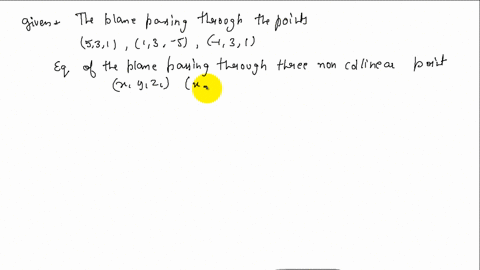 given→ The plane passing through the points
(5,3,1), (1,3,-5), (-1,3,1)
Eq of the plane passing through three non collinear point
(x₁ y₁ z₁) (x₂